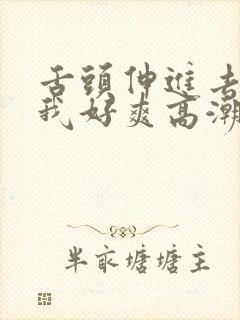 舌頭伸進去
我好爽高潮
半畝塘塘主